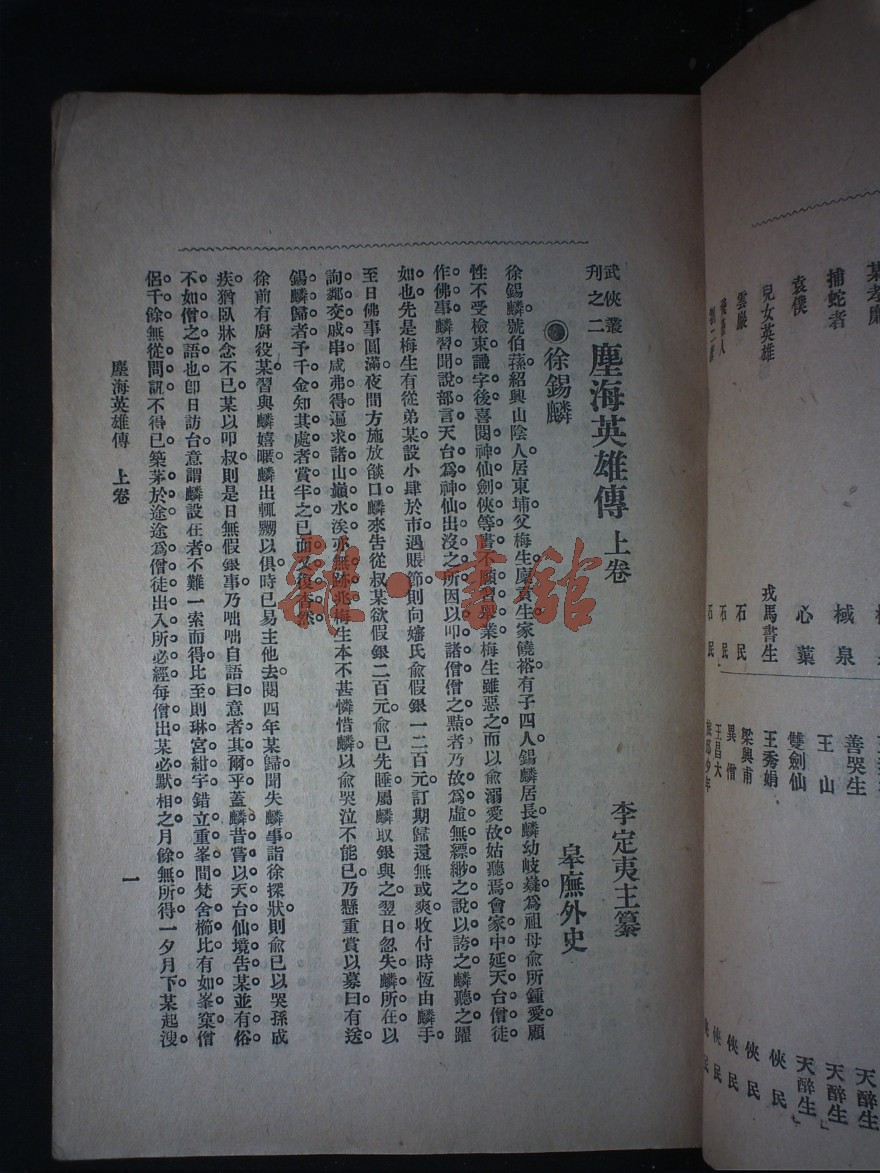 某孝廉
捕蛇者
袁僕
兒女英雄
雲巖
械泉
心葉
戎馬書生
石民
石民
石民
善哭生
王山
雙劍仙
王秀娟
梁興甫
異僧
王昌大
天醉生
天醉生
天醉生
俠民
俠民
俠民
俠民
武俠叢刊之二 塵海英雄傳 上卷 李定夷主纂
徐錫麟 皋廡外史
徐錫麟號伯蓀紹興山陰人居東埔父梅生廩貢生家饒裕有子四人錫麟居長麟幼岐嶷爲祖母俞所鍾愛顧
性不受檢束識字後喜閱神仙劍俠等書不願習舉業梅生雖惡之而以俞溺愛故姑聽焉會家中延天台僧徒
作佛事麟習聞說部言天台爲神仙出沒之所因以叩諸僧僧之黠者乃故爲虛無縹緲之說以誇之麟聽之躍
如也先是梅生有從弟某設小肆於市遇賬節則向嬸氏俞假銀一二百元訂期歸還無或爽收付時恆由麟手
至日佛事圓滿夜間方施放燄口麟來告從叔某欲假銀二百元俞已先睡屬麟取銀與之翌日忽失麟所在以
詢鄰交戚串咸弗得遍求諸山巔水涘亦無跡兆梅生本不甚憐惜麟以俞哭泣不能已乃懸重賞以募曰有送
錫麟歸者予千金知其處者賞半之已而又復杳然
徐前有廚役某習與麟嬉暱麟出輒嬲以俱時已易主他去閱四年某歸聞失麟事詣徐探狀則俞已以哭孫成
疾猶臥牀念不已某以叩叔則是日無假銀事乃咄咄自語曰意者其爾乎蓋麟昔嘗以天台仙境告某並有俗
不如僧之語也卽日訪台意謂麟設在者不難一索而得比至則琳宮紺宇錯立重峯間梵舍櫛比有如峯窠僧
侶千餘無從問訊不得已築茅於途途爲僧徒出入所必經每僧出某必默相之月餘無所得一夕月下某起溲
塵海英雄傳 上卷
一
雜·書館